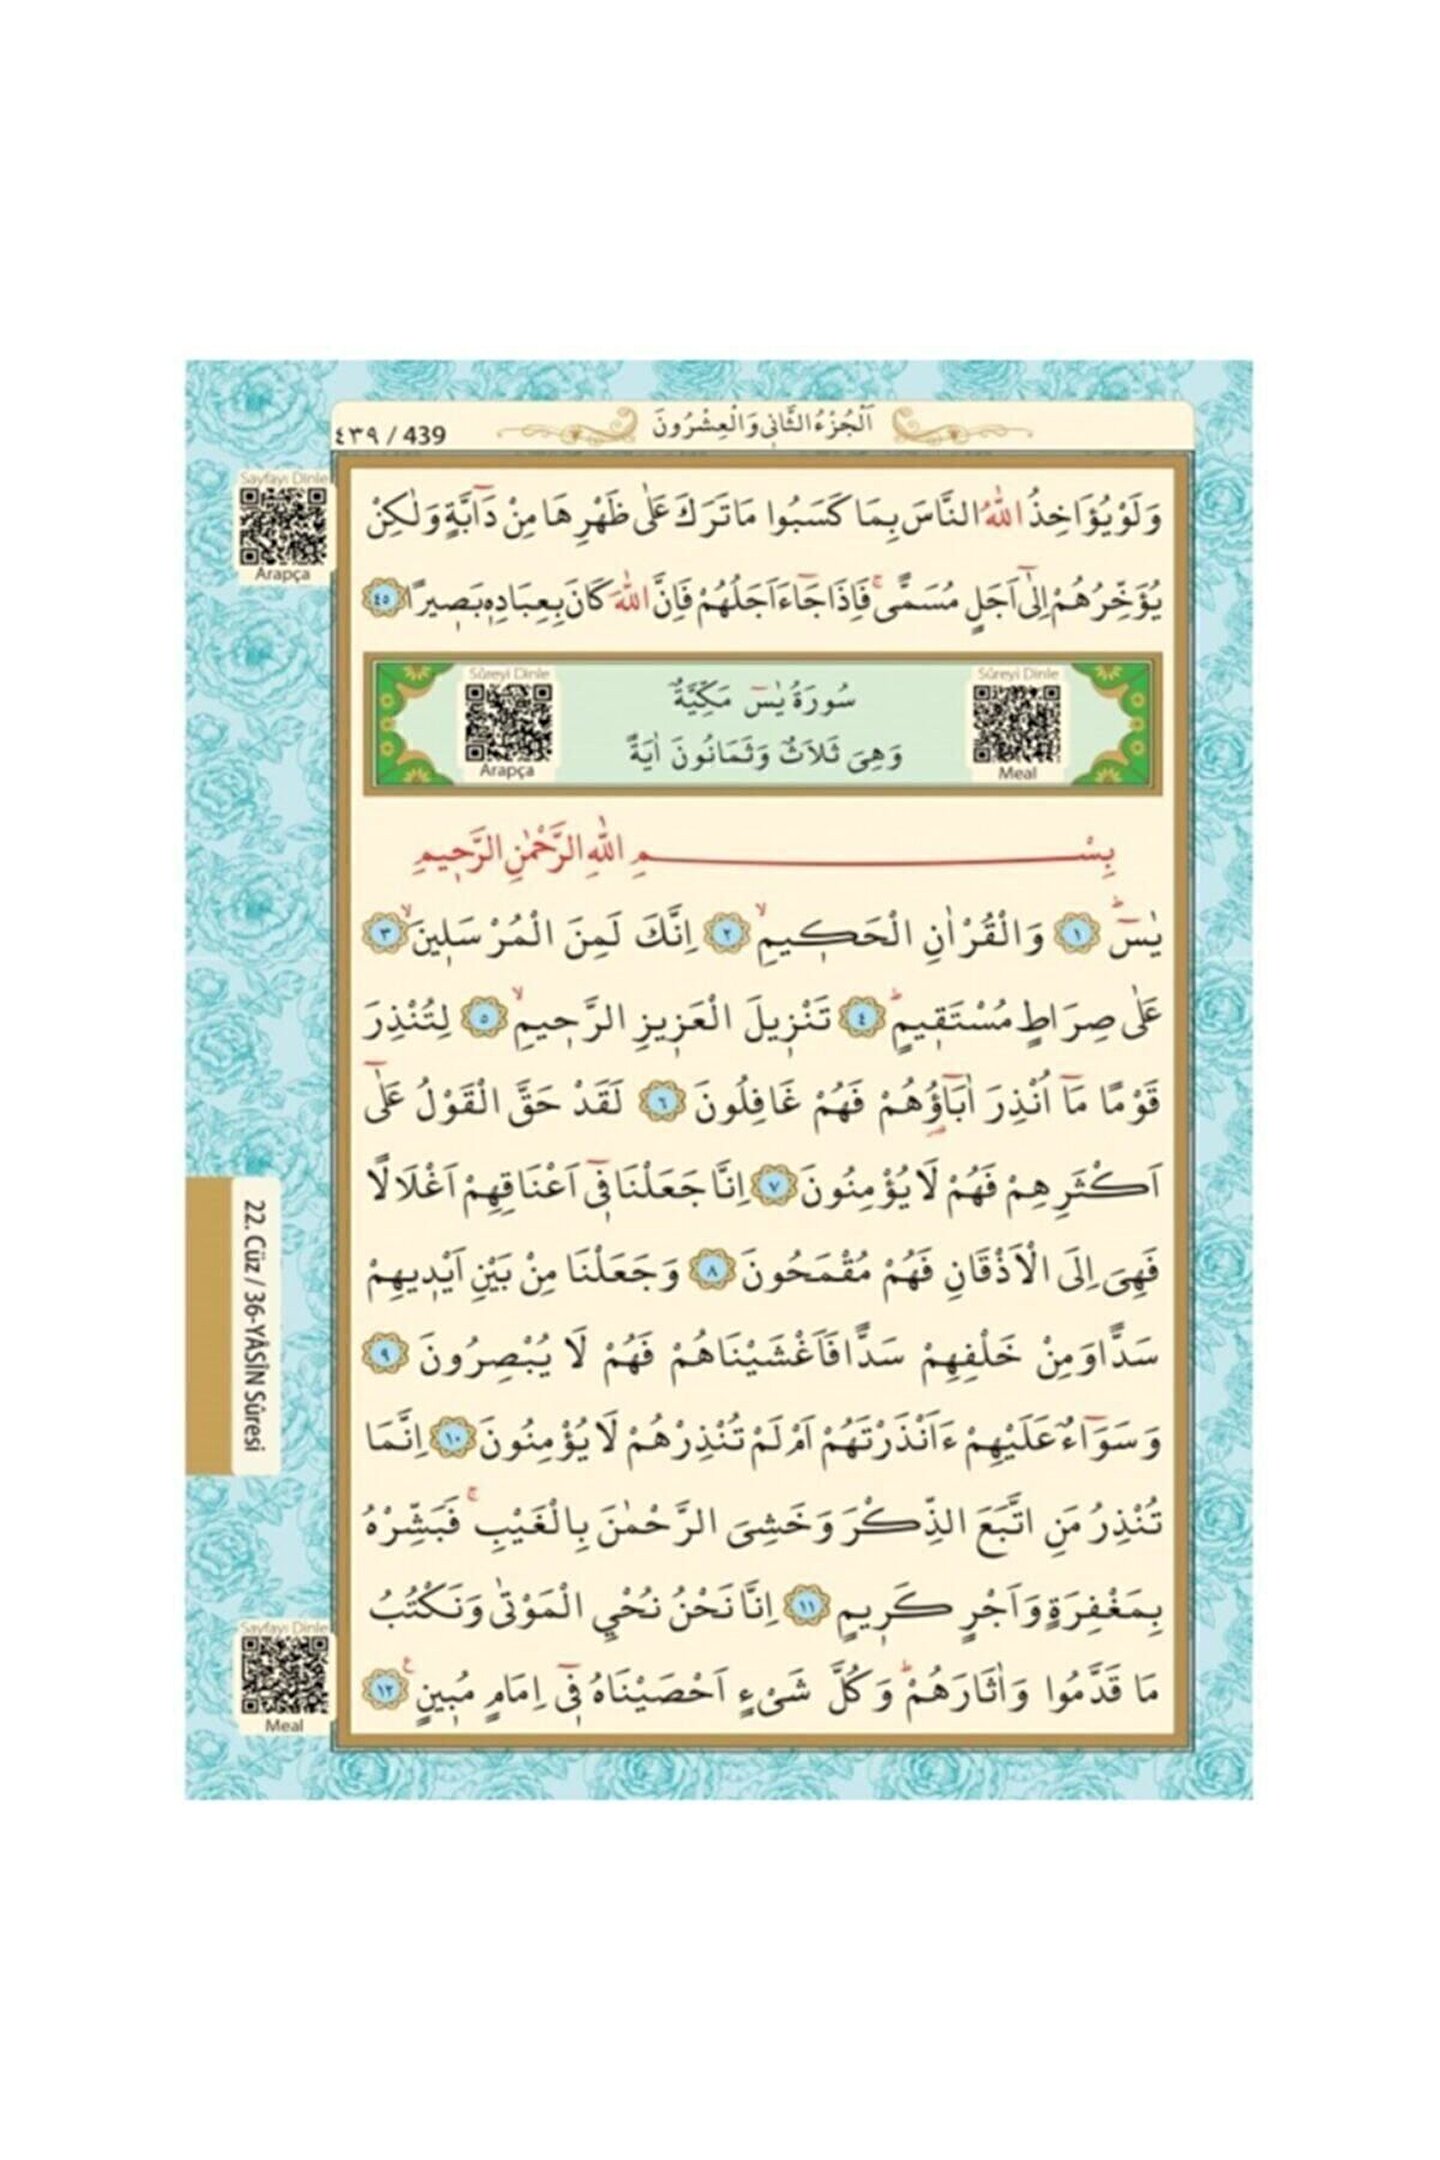 اَلْجُزْءُ الثَّانٖي وَالْعِشْرُونَ
٤٣٩ / 439
Sayfayı Dinle
Arapça
وَلَوْ يُؤَاخِذُ اللّٰهُ النَّاسَ بِمَا كَسَبُوا مَا تَرَكَ عَلٰى ظَهْرِهَا مِنْ دَٓابَّةٍ وَلٰكِنْ
يُؤَخِّرُهُمْ اِلٰٓى اَجَلٍ مُسَمًّىۚ فَاِذَا جَٓاءَ اَجَلُهُمْ فَاِنَّ اللّٰهَ كَانَ بِعِبَادِهٖ بَصٖيرًا ٤٥
Sûreyi Dinle
Arapça
سُورَةُ يٰسٓ مَكِّيَّةٌ
وَهِيَ ثَلَاثٌ وَثَمَانُونَ اٰيَةً
Sûreyi Dinle
Meal
بِسْمِ اللّٰهِ الرَّحْمٰنِ الرَّحٖيمِ
يٰسٓۜ ١ وَالْقُرْاٰنِ الْحَكٖيمِۙ ٢ اِنَّكَ لَمِنَ الْمُرْسَلٖينَۙ ٣
عَلٰى صِرَاطٍ مُسْتَقٖيمٍۜ ٤ تَنْزٖيلَ الْعَزٖيزِ الرَّحٖيمِۙ ٥ لِتُنْذِرَ
قَوْمًا مَٓا اُنْذِرَ اٰبَٓاؤُ۬هُمْ فَهُمْ غَافِلُونَ ٦ لَقَدْ حَقَّ الْقَوْلُ عَلٰٓى
اَكْثَرِهِمْ فَهُمْ لَا يُؤْمِنُونَ ٧ اِنَّا جَعَلْنَا فٖٓي اَعْنَاقِهِمْ اَغْلَالًا
فَهِيَ اِلَى الْاَذْقَانِ فَهُمْ مُقْمَحُونَ ٨ وَجَعَلْنَا مِنْ بَيْنِ اَيْدٖيهِمْ
سَدًّا وَمِنْ خَلْفِهِمْ سَدًّا فَاَغْشَيْنَاهُمْ فَهُمْ لَا يُبْصِرُونَ ٩
وَسَوَٓاءٌ عَلَيْهِمْ ءَاَنْذَرْتَهُمْ اَمْ لَمْ تُنْذِرْهُمْ لَا يُؤْمِنُونَ ١٠ اِنَّمَا
تُنْذِرُ مَنِ اتَّبَعَ الذِّكْرَ وَخَشِيَ الرَّحْمٰنَ بِالْغَيْبِۚ فَبَشِّرْهُ
بِمَغْفِرَةٍ وَاَجْرٍ كَرٖيمٍ ١١ اِنَّا نَحْنُ نُحْيِ الْمَوْتٰى وَنَكْتُبُ
مَا قَدَّمُوا وَاٰثَارَهُمْۜ وَكُلَّ شَيْءٍ اَحْصَيْنَاهُ فٖٓي اِمَامٍ مُبٖينٍ۟ ١٢
22. Cüz / 36-YÂSİN Sûresi
Sayfayı Dinle
Meal